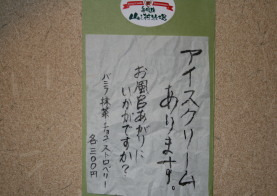 アイスクリーム
あります。
お風呂あがりに
いかがですか？
バニラ 抹茶 チョコ ストロベリー
各三〇〇円